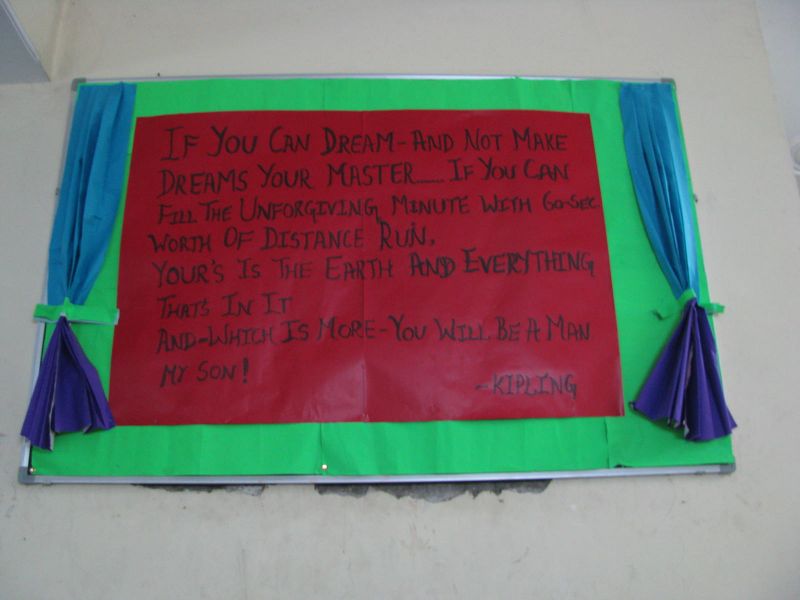 IF YOU CAN DREAM - AND NOT MAKE
DREAMS YOUR MASTER...... IF YOU CAN
FILL THE UNFORGIVING MINUTE WITH 60-SEC
WORTH OF DISTANCE RUN,
YOUR'S IS THE EARTH AND EVERYTHING
THATS IN IT
AND-WHICH IS MORE-YOU WILL BE A MAN
MY SON!
-KIPLING